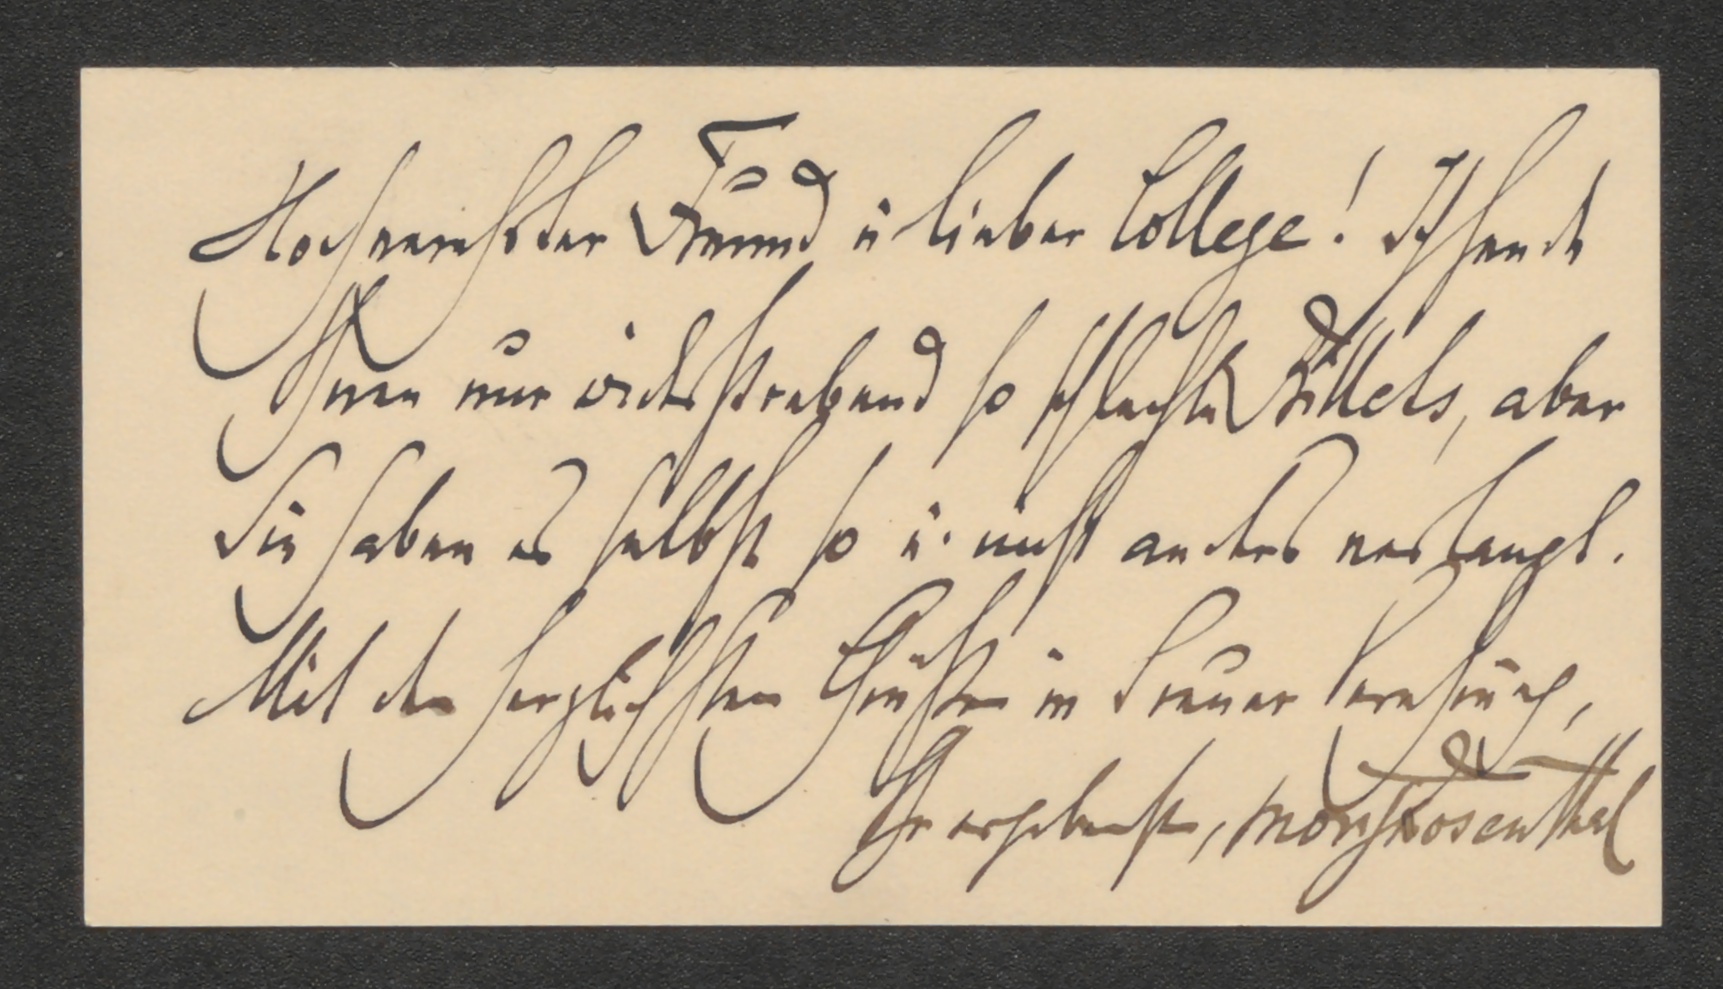 Hochverehrter Freund u lieber College! Ich sende
Ihnen nur widerstrebend so schlechte Billets, aber
Sie haben es selbst so u. nicht anders verlangt.
Mit den herzlichsten Grüßen in treuer Verehrung,
Ihr ergebenster, Moriz Rosenthal